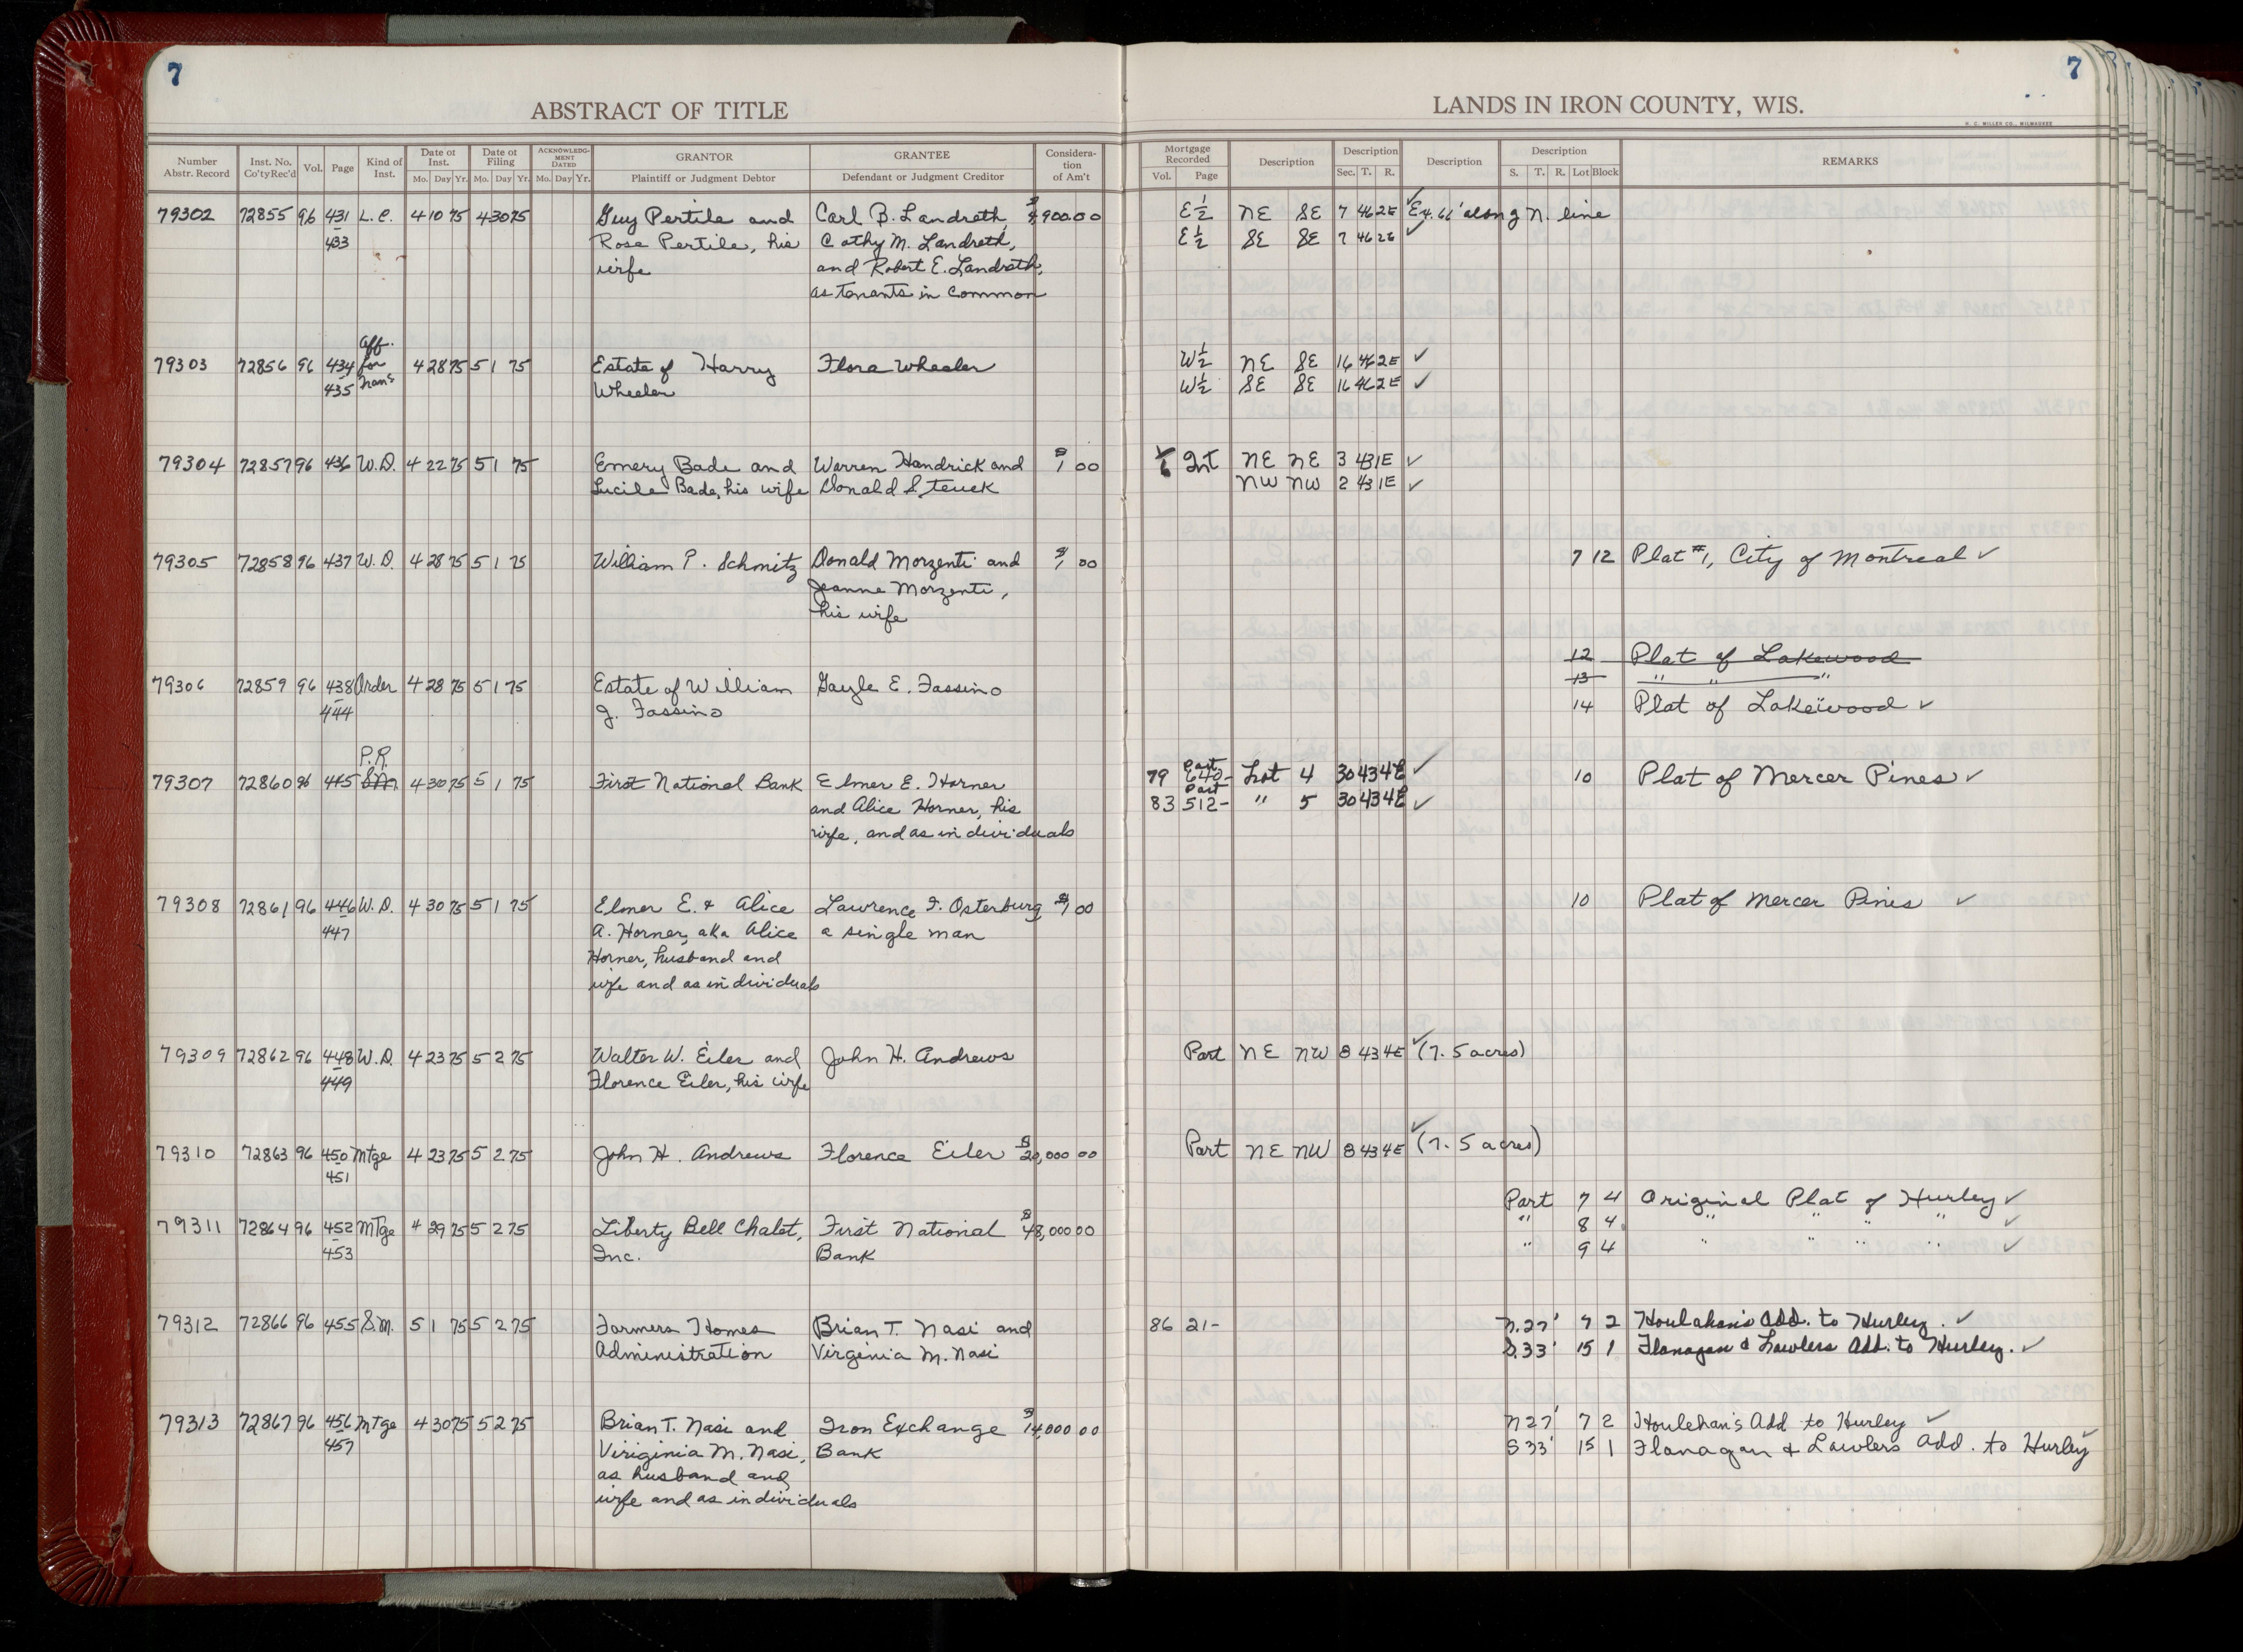 7
7
ABSTRACT OF TITLE
LANDS IN IRON COUNTY, WIS.
H. C. MILLER CO., MILWAUKEE
Number Abstr. Record Inst. No. Co'ty Rec'd Vol. Page Kind of Inst. Date of Inst. Mo. Day Yr. Date of Filing Mo. Day Yr. ACKNOWLEDGMENT DATED Mo. Day Yr. GRANTOR Plaintiff or Judgment Debtor GRANTEE Defendant or Judgment Creditor Consideration of Am't Mortgage Recorded Vol. Page Description Description Sec. T. R. Description Description S. T. R. Lot Block REMARKS
79302 72855 96 431 L.C. 4 10 75 4 30 75 Guy Pertile and Carl B. Landreth, E½ NE SE 7 46 2E ✓ along N. line
433 Rosa Pertile, his Cathy M. Landreth, E½ SE SE 7 46 2E ✓
wife and Robert E. Landreth,
as tenants in common
Aff.
79303 72856 96 434 for 4 28 75 5 1 75 Estate of Harry Flora Wheeler W½ NE SE 16 46 2E ✓
435 Trans Wheeler W½ SE SE 16 46 2E ✓
79304 72857 96 436 W.D. 4 22 75 5 1 75 Emery Bade and Warren Handrick and $1 00 Int NE NE 3 43 1E ✓
Lucile Bade, his wife Donald Steuck NW NW 2 43 1E ✓
79305 72858 96 437 W.D. 4 28 75 5 1 75 William P. Schmitz Donald Morzenti and $1 00 7 12 Plat #1, City of Montreal ✓
Jeanne Morzenti,
his wife
12 Plat of Lakewood
13 " " "
79306 72859 96 438 Order 4 28 75 5 1 75 Estate of William Gayle E. Fassino 14 Plat of Lakewood ✓
444 J. Fassino
P.R.
Part
79307 72860 96 445 S.M. 4 30 75 5 1 75 First National Bank Elmer E. Horner 79 640- Lot 4 30 43 4E ✓ 10 Plat of Mercer Pines ✓
Part
and Alice Horner, his 83 512- " 5 30 43 4E ✓
wife, and as individuals
79308 72861 96 446 W.D. 4 30 75 5 1 75 Elmer E. & Alice Lawrence F. Osterburg, $1 00 10 Plat of Mercer Pines ✓
447 A. Horner, aka Alice a single man
Horner, husband and
wife and as individuals
79309 72862 96 448 W.D. 4 23 75 5 2 75 Walter W. Eiler and John H. Andrews Part NE NW 8 43 4E ✓ (7.5 acres)
449 Florence Eiler, his wife
79310 72863 96 450 Mtge 4 23 75 5 2 75 John H. Andrews Florence Eiler $20,000 00 Part NE NW 8 43 4E ✓ (7.5 acres)
451
Part 7 4 Original Plat of Hurley ✓
79311 72864 96 452 Mtge 4 29 75 5 2 75 Liberty Bell Chalet, First National $48,000 00 " 8 4 " " " " ✓
453 Inc. Bank " 9 4 " " " " ✓
79312 72866 96 455 S.M. 5 1 75 5 2 75 Farmers Homes Brian T. Nasi and 86 21- N.27' 7 2 Houlahan's Add. to Hurley. ✓
Administration Virginia M. Nasi S.33' 15 1 Flanagan & Lawlers Add. to Hurley. ✓
79313 72867 96 456 Mtge 4 30 75 5 2 75 Brian T. Nasi and Iron Exchange $14,000 00 N 27' 7 2 Houlehan's Add to Hurley ✓
457 Viriginia M. Nasi, Bank S 33' 15 1 Flanagan & Lawlers Add. to Hurley ✓
as husband and
wife and as individuals